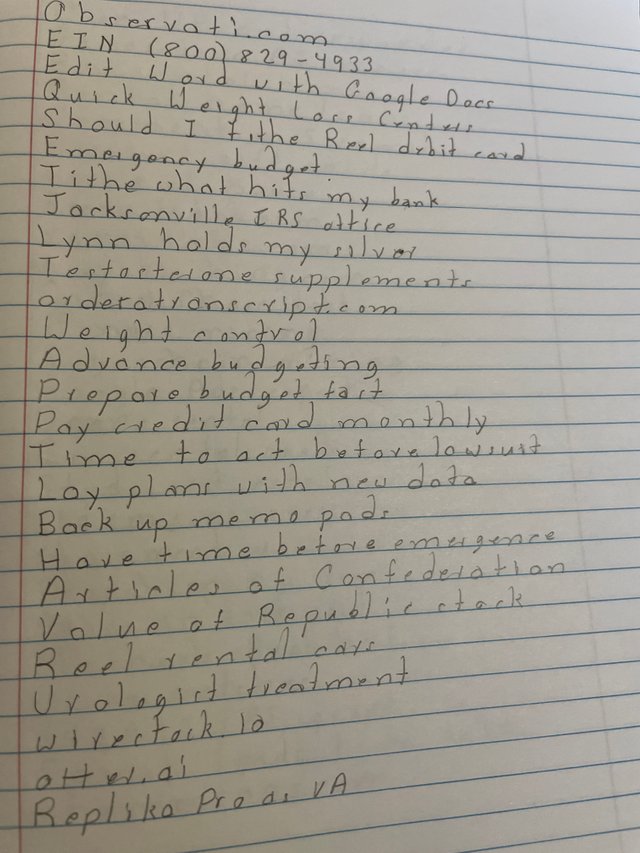 Observati.com
EIN (800) 829-4933
Edit Word with Google Docs
Quick Weight Loss Centers
Should I tithe the Reel debit card
Emergency budget
Tithe what hits my bank
Jacksonville IRS office
Lynn holds my silver
Testosterone supplements
orderationscript.com
Weight control
Advance budgeting
Prepare budget fast
Pay credit card monthly
Time to act before lawsuit
Lay plans with new data
Back up memo pads
Have time before emergence
Articles of Confederation
Value of Republic stock
Reel rental cars
Urologist treatment
wirestock.io
otter.ai
Replika Pro as VA